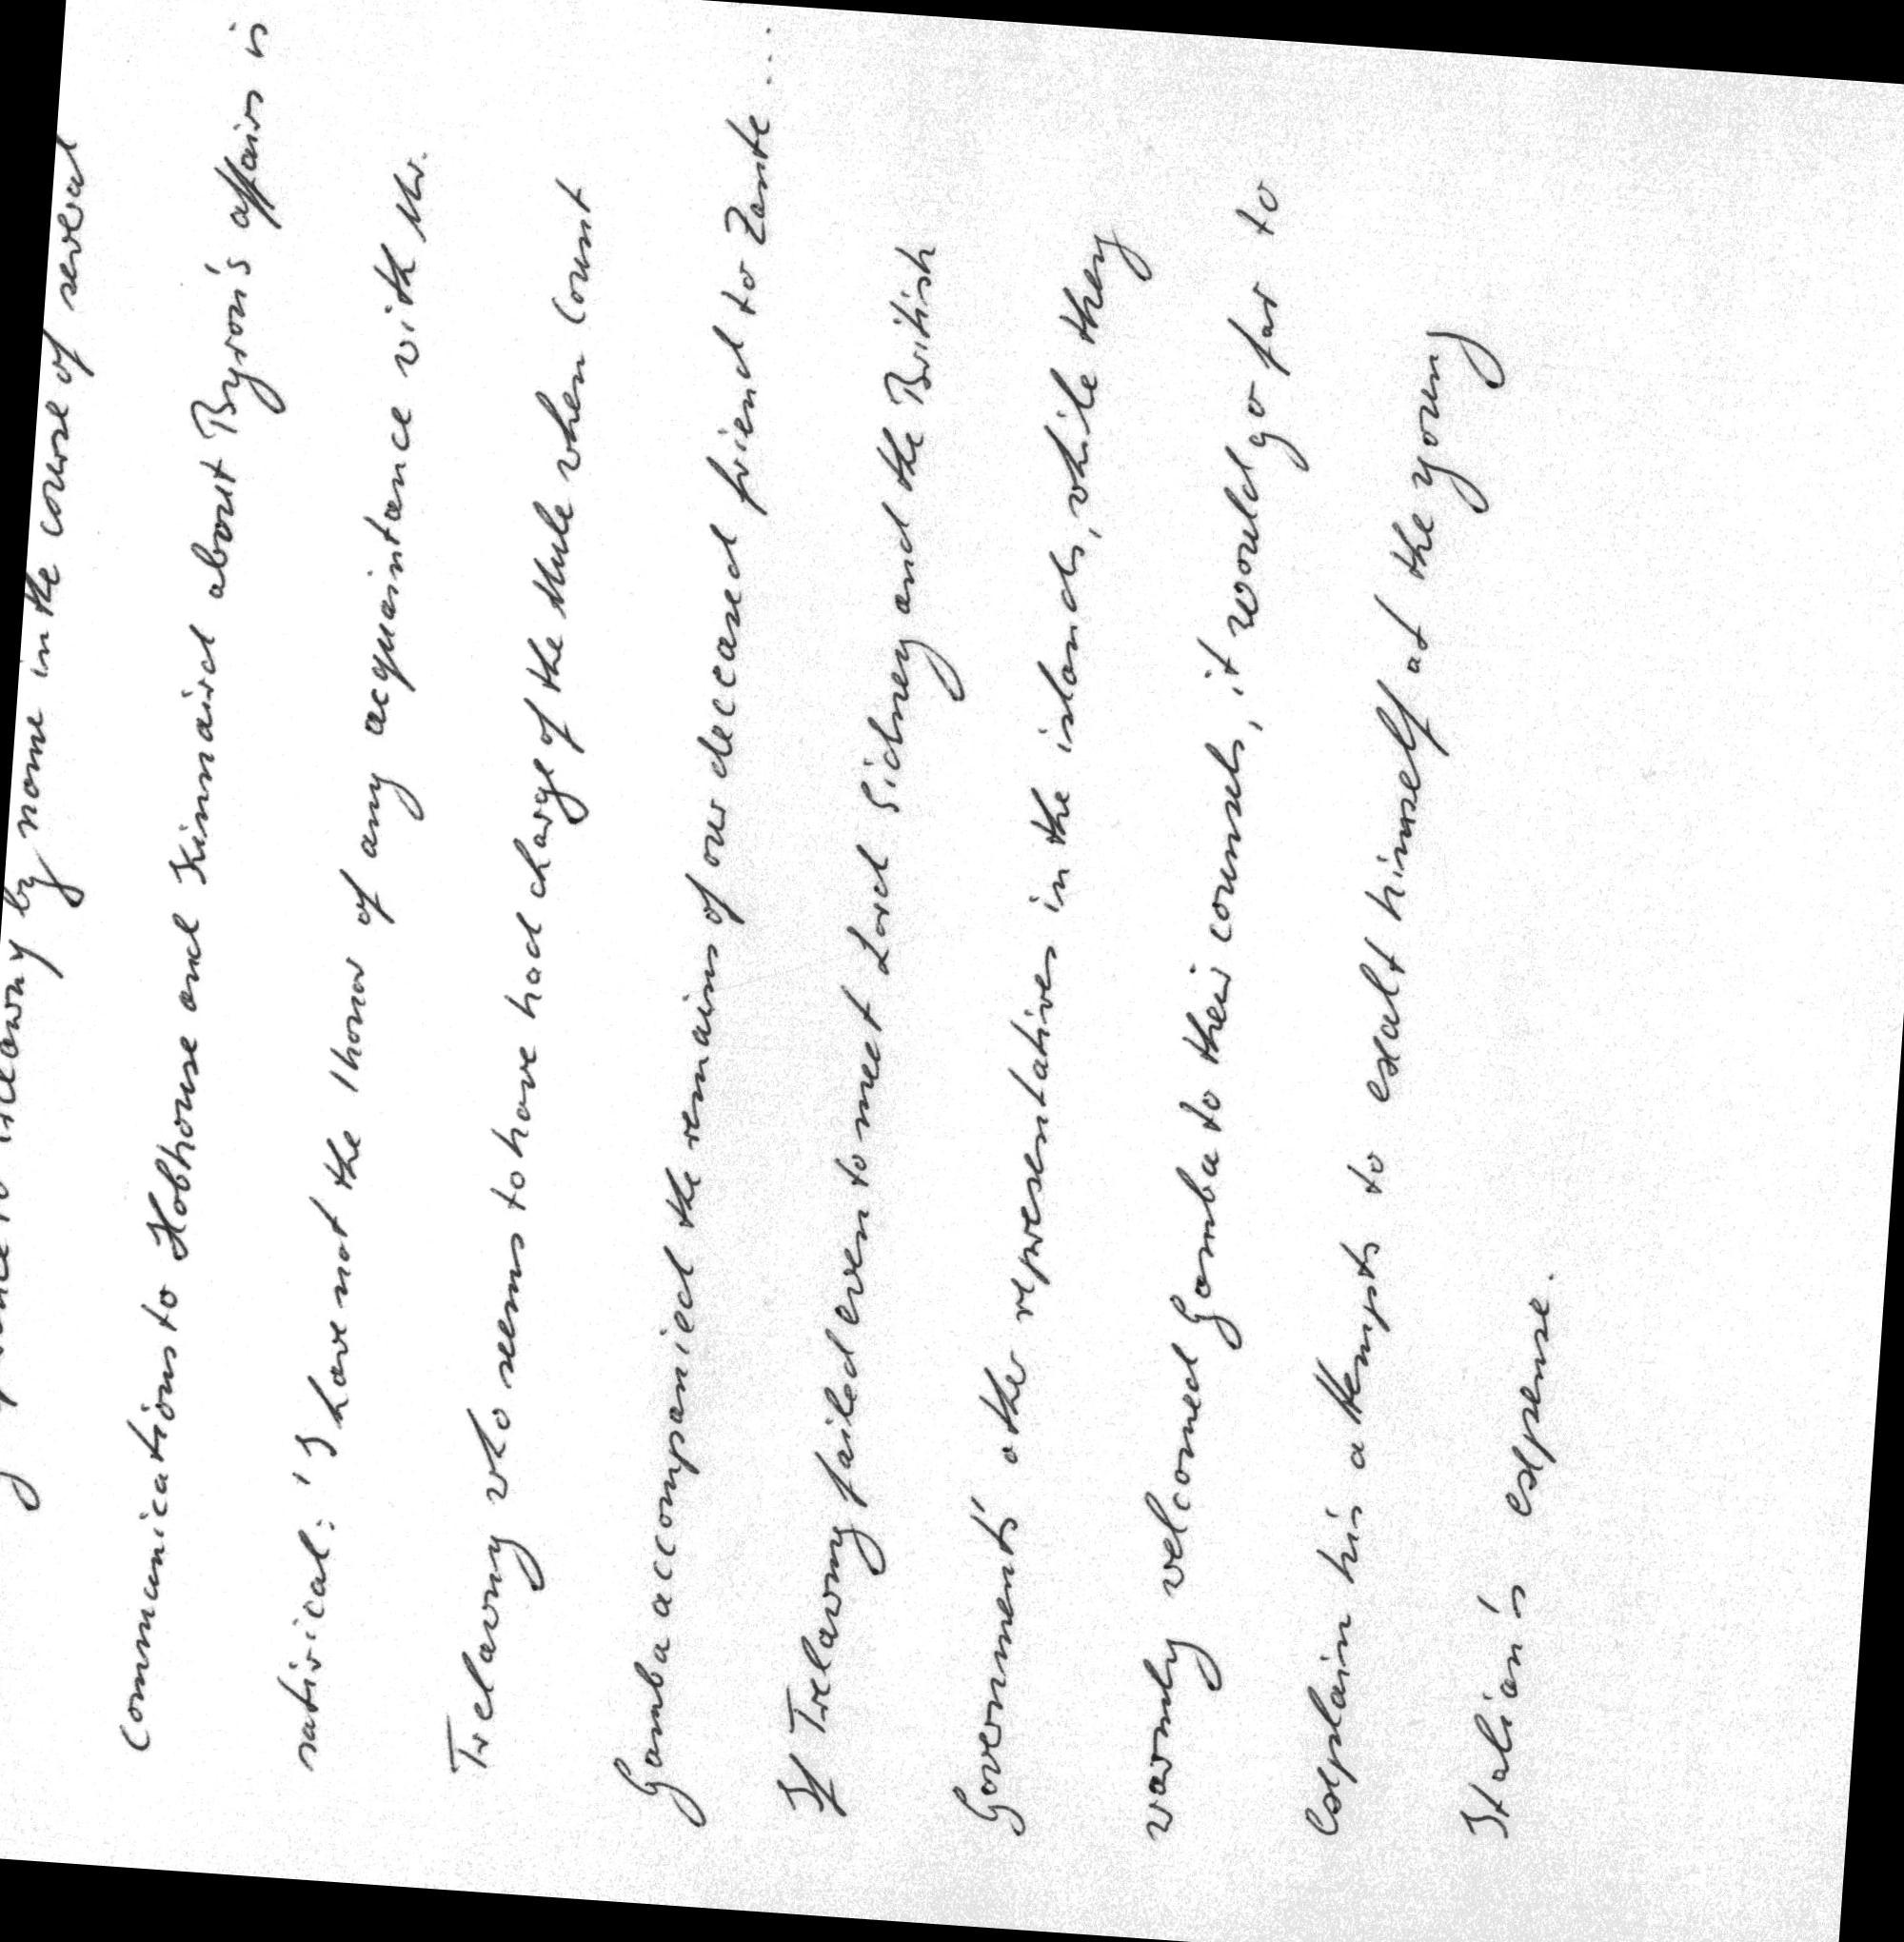 by name in the course of several
communications to Hobhouse and Kinnaird about Byron's affairs is
satirical: 'I have not the honor of any acquaintance with Mr.
Trelawny who seems to have had charge of the Mule when Count
Gamba accompanied the remains of our deceased friend to Zante ...
If Trelawny failed even to meet Lord Sidney and the British
Governments' other representatives in the islands, while they
warmly welcomed Gamba to their counsels, it would go far to
explain his attempts to exalt himself at the young
Italian's expense.